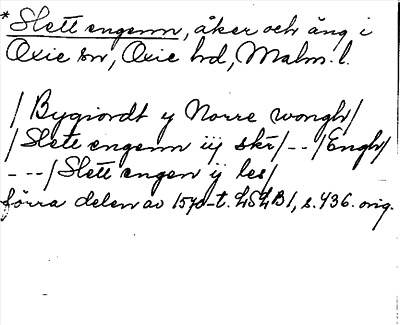 *Slett engenn, åker och äng i
Oxie sn, Oxie hd, Malm. l.
/Bygiordt y Norre wongh/
/Slett engenn iij skr/--/Engh/
---/Slett engen ij les/
förra delen av 1570-t. LSLB1, s. 436. orig.